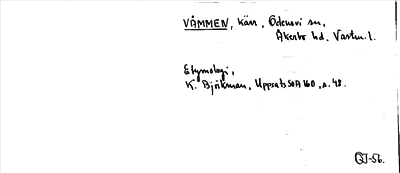 VÄMMEN, kärr, Odensvi sn,
Åkerbo hd. Vastm. l.
Etymologi,
K. Björkman, Uppsats SOA 160, s. 48.
-56.